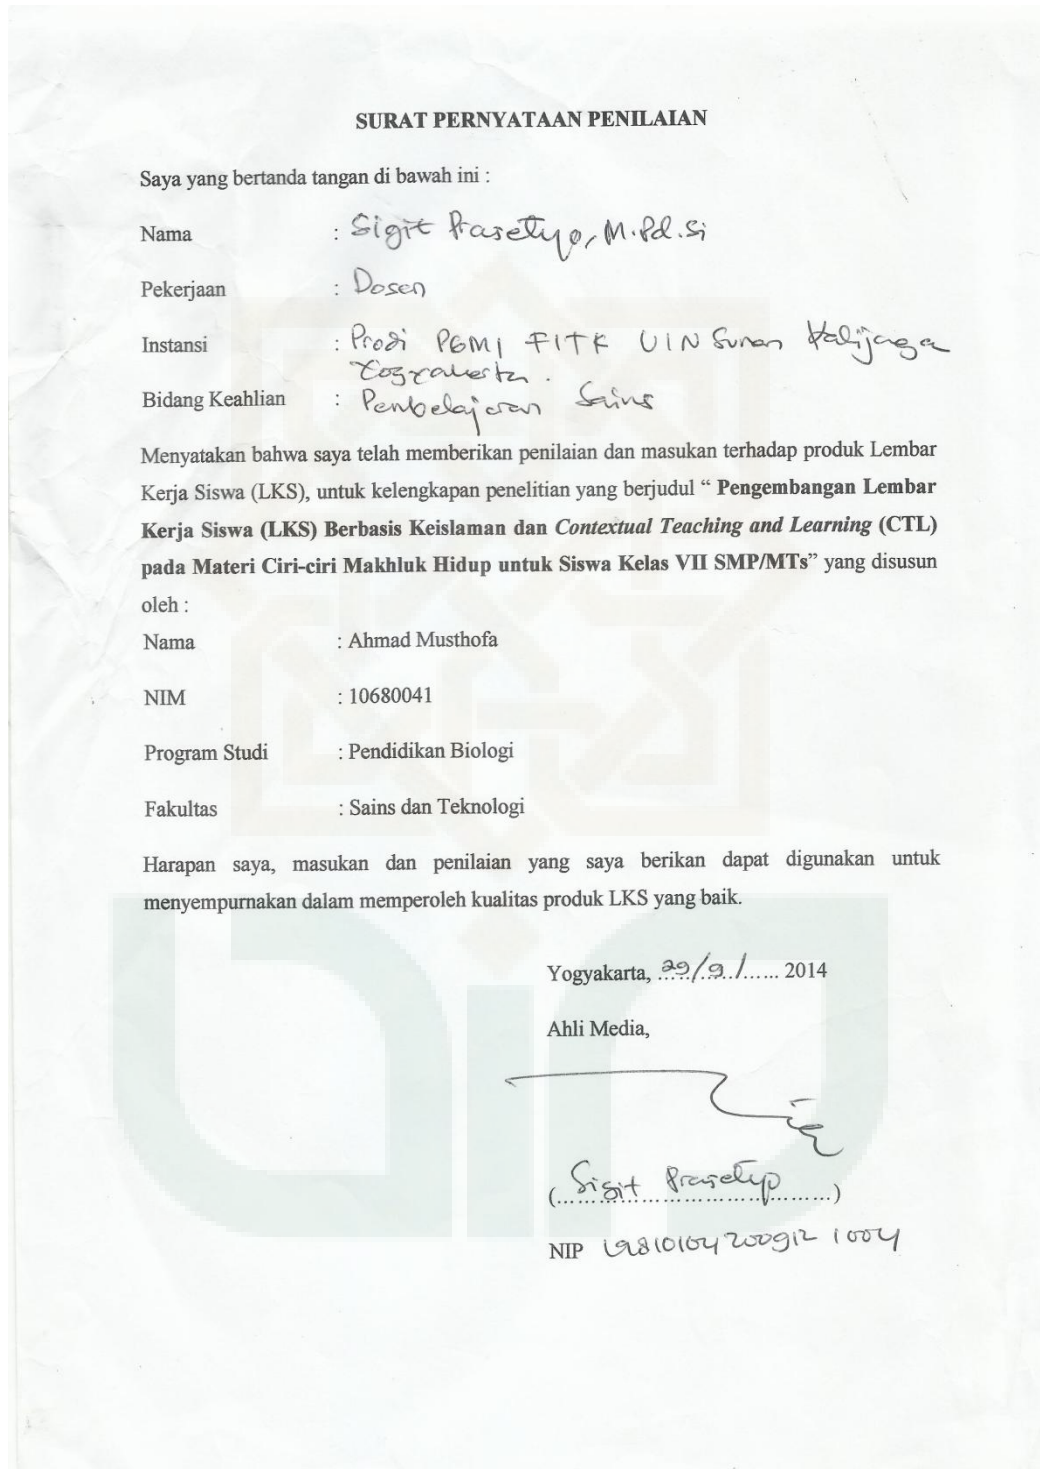 SURAT PERNYATAAN PENILAIAN
Saya yang bertanda tangan di bawah ini :
Nama : Sigit Prasetyo, M.Pd.Si
Pekerjaan : Dosen
Instansi : Prodi PGMI FITK UIN Sunan Kalijaga
Yogyakarta.
Bidang Keahlian : Pembelajaran Sains
Menyatakan bahwa saya telah memberikan penilaian dan masukan terhadap produk Lembar
Kerja Siswa (LKS), untuk kelengkapan penelitian yang berjudul “ Pengembangan Lembar
Kerja Siswa (LKS) Berbasis Keislaman dan Contextual Teaching and Learning (CTL)
pada Materi Ciri-ciri Makhluk Hidup untuk Siswa Kelas VII SMP/MTs” yang disusun
oleh :
Nama : Ahmad Musthofa
NIM : 10680041
Program Studi : Pendidikan Biologi
Fakultas : Sains dan Teknologi
Harapan saya, masukan dan penilaian yang saya berikan dapat digunakan untuk
menyempurnakan dalam memperoleh kualitas produk LKS yang baik.
Yogyakarta, 29/9/...... 2014
Ahli Media,
(Sigit Prasetyo)
NIP 19810104 200912 1 004